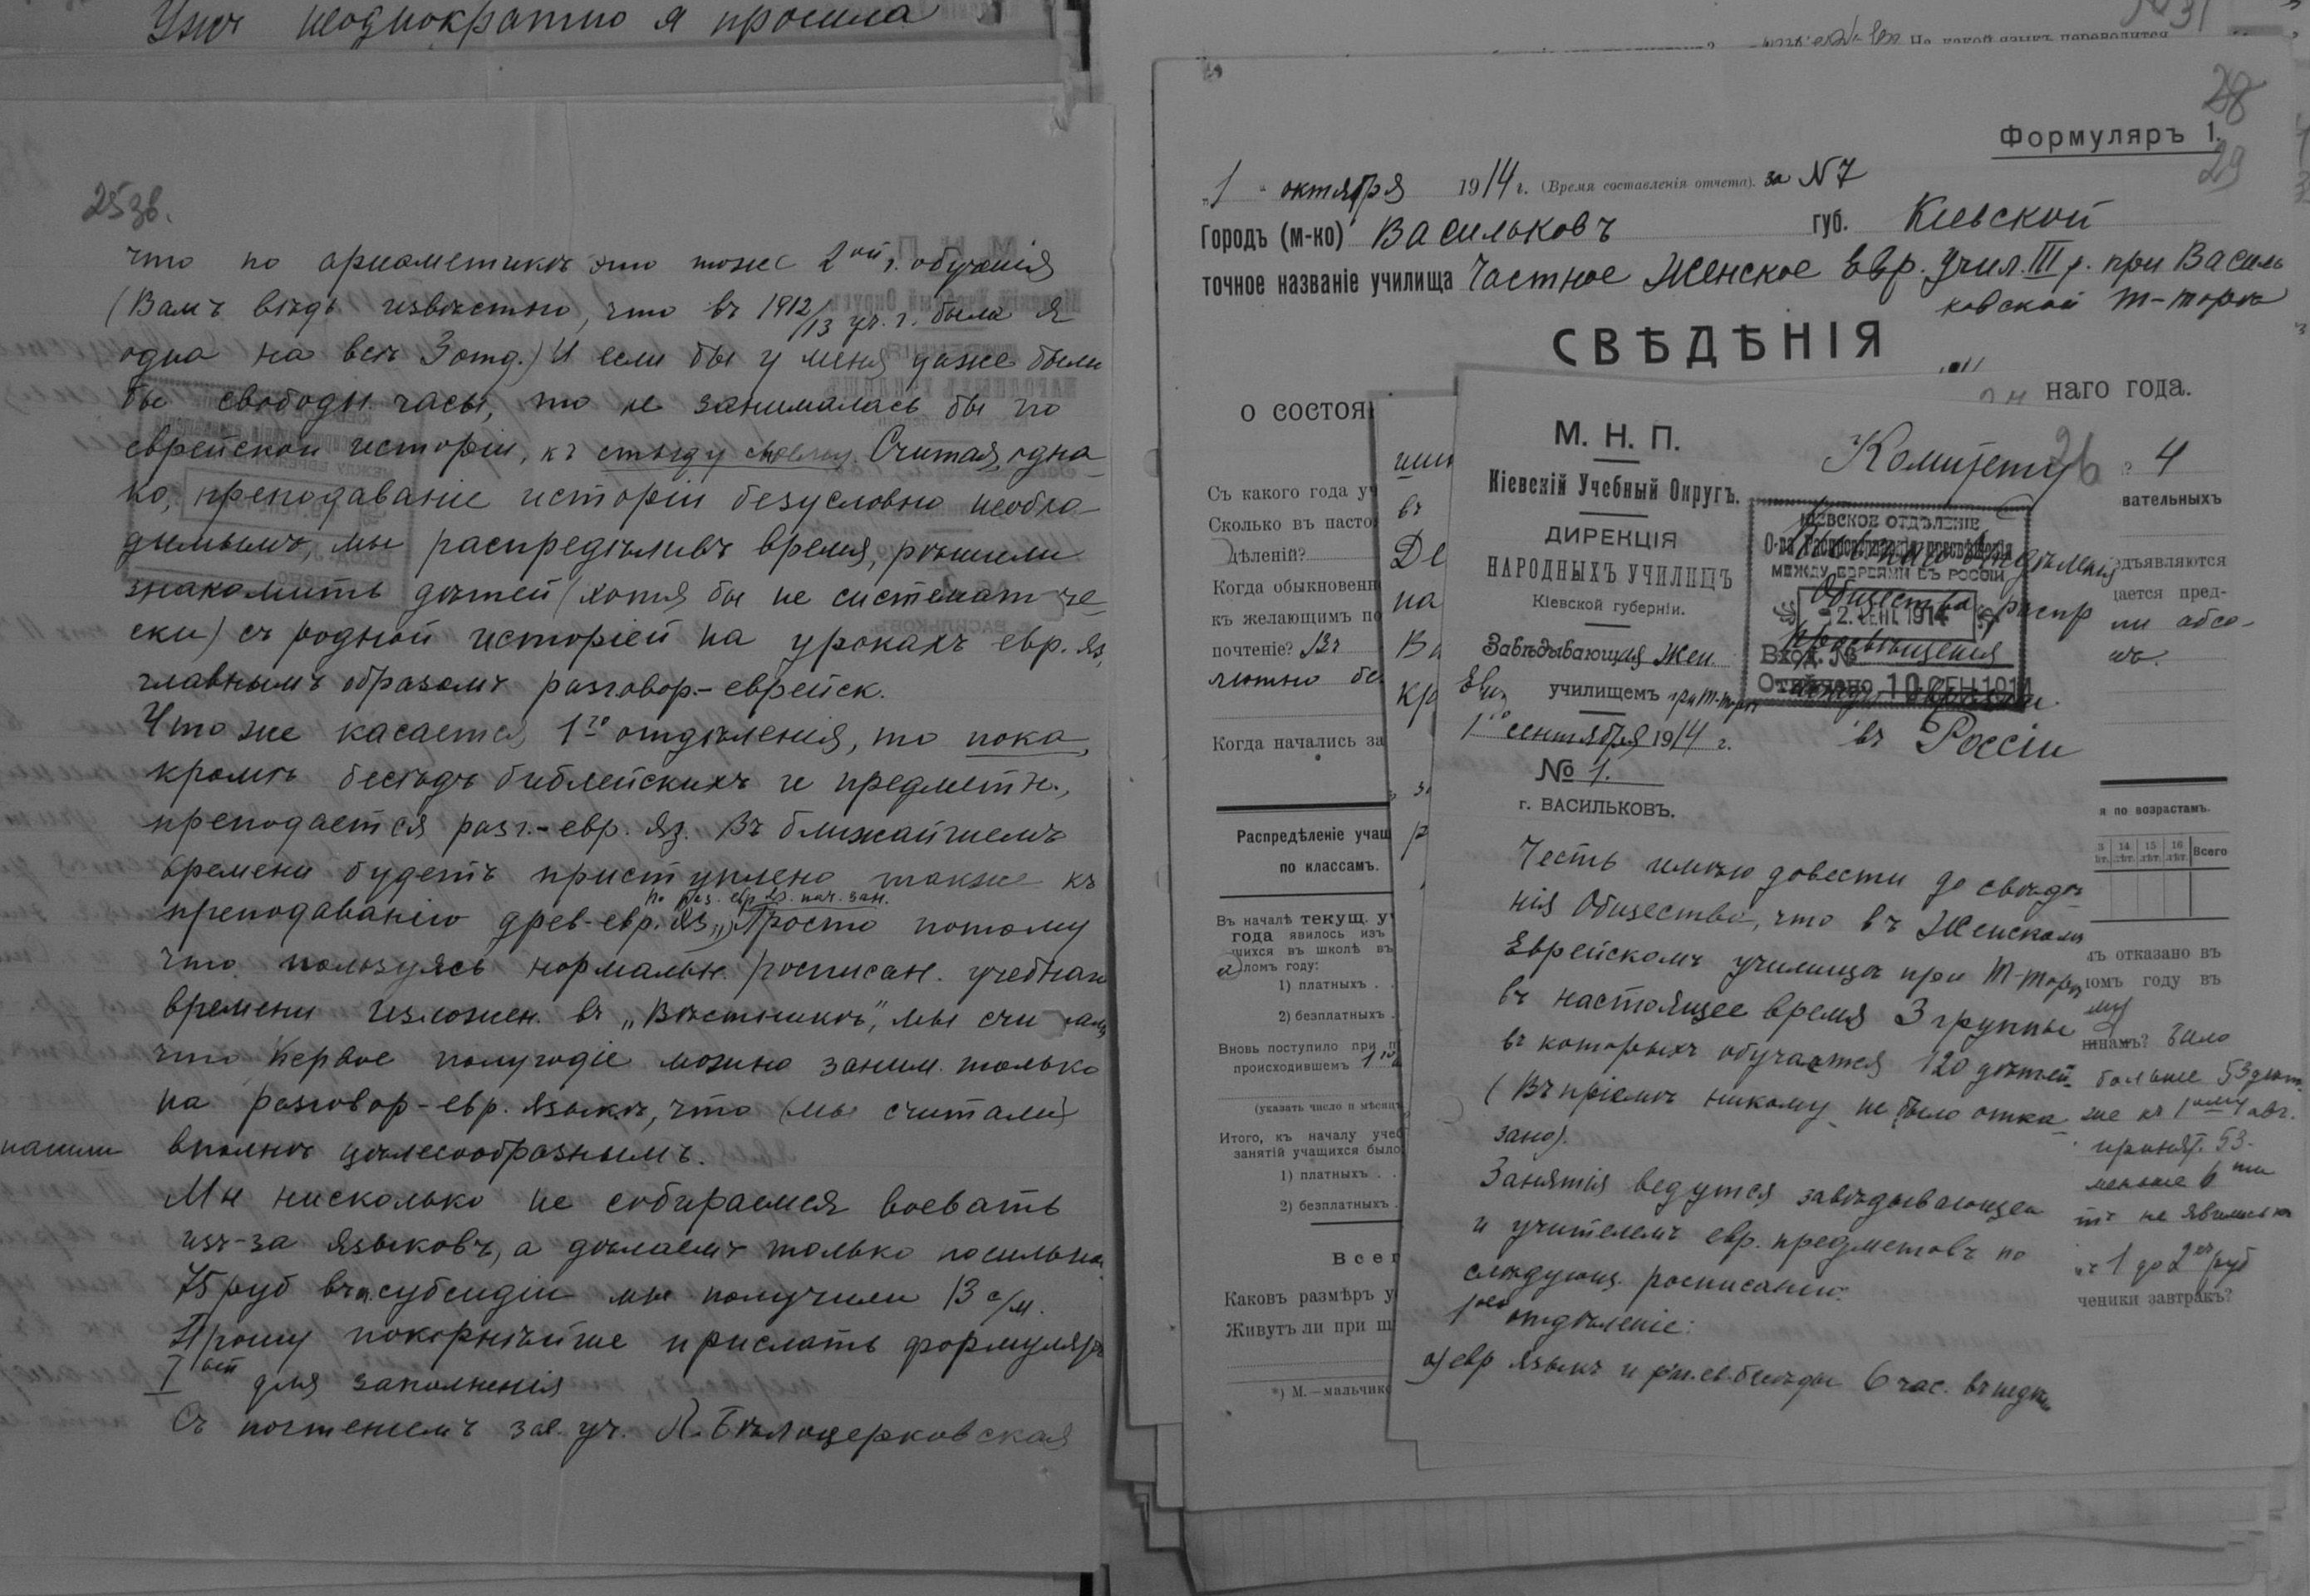 неоднократно я просила
25 зв.
что по ариөметикѣ это тоже 2ой г. обученія
(Вамъ вѣдь извѣстно, что въ 1912/13 уч. г. была я
одна на всѣ 3 отд.) И если бы у меня даже были
бы свободн. часы, то не занималась бы по
еврейской исторіи, къ стыду своему. Считая, одна-
ко, преподаваніе исторіи безусловно необхо-
димымъ, мы распредѣливъ время, рѣшили
знакомить дѣтей (хотя бы не системати че-
ски) съ родной исторіей на урокахъ евр. яз.
главнымъ образомъ разговор.-еврейск.
Что же касается 1го отдѣленія, то пока,
кромѣ бесѣдъ библейскихъ и предметн.,
преподается разг.-евр. яз. Въ ближайшемъ
времени будетъ приступлено также къ
по раз. евр. яз. нач. зан.
преподаванію древ-евр. яз. Просто потому
что пользуясь нормальн. росписан. учебнаго
времени изложен. въ „Вѣстникѣ“, мы счи
что первое полугодіе можно заним. только
на разговор-евр. языкѣ, что (мы считали)
нашли вполнѣ цѣлесообразнымъ.
Мы нисколько не собираемся воевать
изъ-за языковъ, а дѣлаемъ только посильное
75 руб въ субсидіи мы получили 13 с/м.
Прошу покорнѣйше прислать формуляръ
Iый для заполненія
Съ почтеніемъ зав. уч. Л. Бѣлоцерковская
На какой языкъ переводится
31
28
Формуляръ 1.
29
„1 “ октября 1914 г. (Время составленія отчета). за № 7
Городъ (м-ко) Васильковъ губ. Кіевской
точное названіе училища Частное Женское Евр. Учил. III р. при Василь
ковской Т-Торѣ
СВѢДѢНІЯ
о состоя
наго года.
Съ какого года уч
Сколько въ насто
дѣленій?
Когда обыкновенн
къ желающимъ по
почтеніе? Въ
лютно бе
Когда начались за
Распредѣленіе учащ
по классамъ.
Въ началѣ текущ. у
года явилось изъ
щихся въ школѣ въ
ломъ году:
1) платныхъ . .
2) безплатныхъ .
Вновь поступило при п
происходившемъ 1го
(указать число и мѣсяцъ
Итого, къ началу учеб
занятій учащихся было
1) платныхъ . .
2) безплатныхъ .
Всег
Каковъ размѣръ у
Живутъ ли при ш
*) М.—мальчико
въ
Де
на
Ва
кр
М. Н. П.
Кіевскій Учебный Округъ.
ДИРЕКЦІЯ
НАРОДНЫХЪ УЧИЛИЩЪ
Кіевской губерніи.
Завѣдывающая Жен.
Евр. училищемъ при Т-Торѣ
1го сентября 1914 г.
№ 1.
г. ВАСИЛЬКОВЪ.
26
Комитету
Кіевскаго Отдѣленія
Общества распр
просвѣщенія
между евреями
въ Россіи
КІЕВСКОЕ ОТДѢЛЕНІЕ
О-ва Распространенія просвѣщенія
МЕЖДУ ЕВРЕЯМИ ВЪ РОССІИ
2. СЕН. 1914
Вход. №
Отвѣчено 10 СЕН 1914
Честь имѣю довести до свѣдѣ-
нія Общества, что въ Женскомъ
Еврейскомъ училищѣ при Т-Торѣ
въ настоящее время 3 группы
въ которыхъ обучается 120 дѣтей
(Въ пріемѣ никому не было отка-
зано).
Занятія ведутся завѣдывающей
и учителемъ евр. предметовъ по
слѣдующ. росписанію:
1ое отдѣленіе:
а) евр языкъ и раз. ев. бесѣды 6 час. въ недѣлю
? 4
вательныхъ
дъявляются
дается пред-
ни абсо-
я по возрастамъ.
3 лѣт. 14 лѣт. 15 лѣт. 16 лѣт. Всего
мъ отказано въ
омъ году въ
чинамъ? было
больше 53 дѣт.
же къ 1ому авг.
принят. 53.
меньше 6ти
не явились
1 до 2хъ руб
ченики завтракъ?